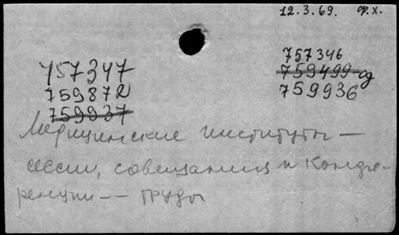 12.3.69. ф.х.
757347
757346
759872
759499-д
759937
759936
Медицинские институты —
сессии, совещания и Конфе-
ренции — труды